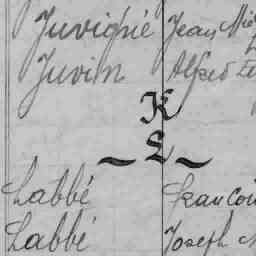 Juvignié Jean Mi
Juvin Alfred
K
~ L ~
Labbé Francoi
Labbé Joseph